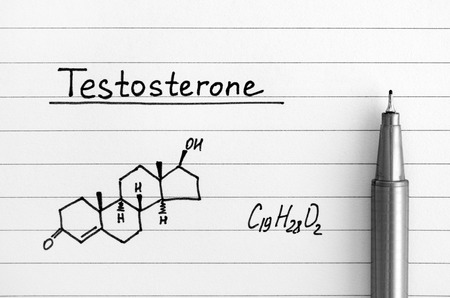 Testosterone
OH
H H H
O
C19H28O2